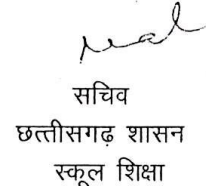 सचिव
छत्तीसगढ़ शासन
स्कूल शिक्षा